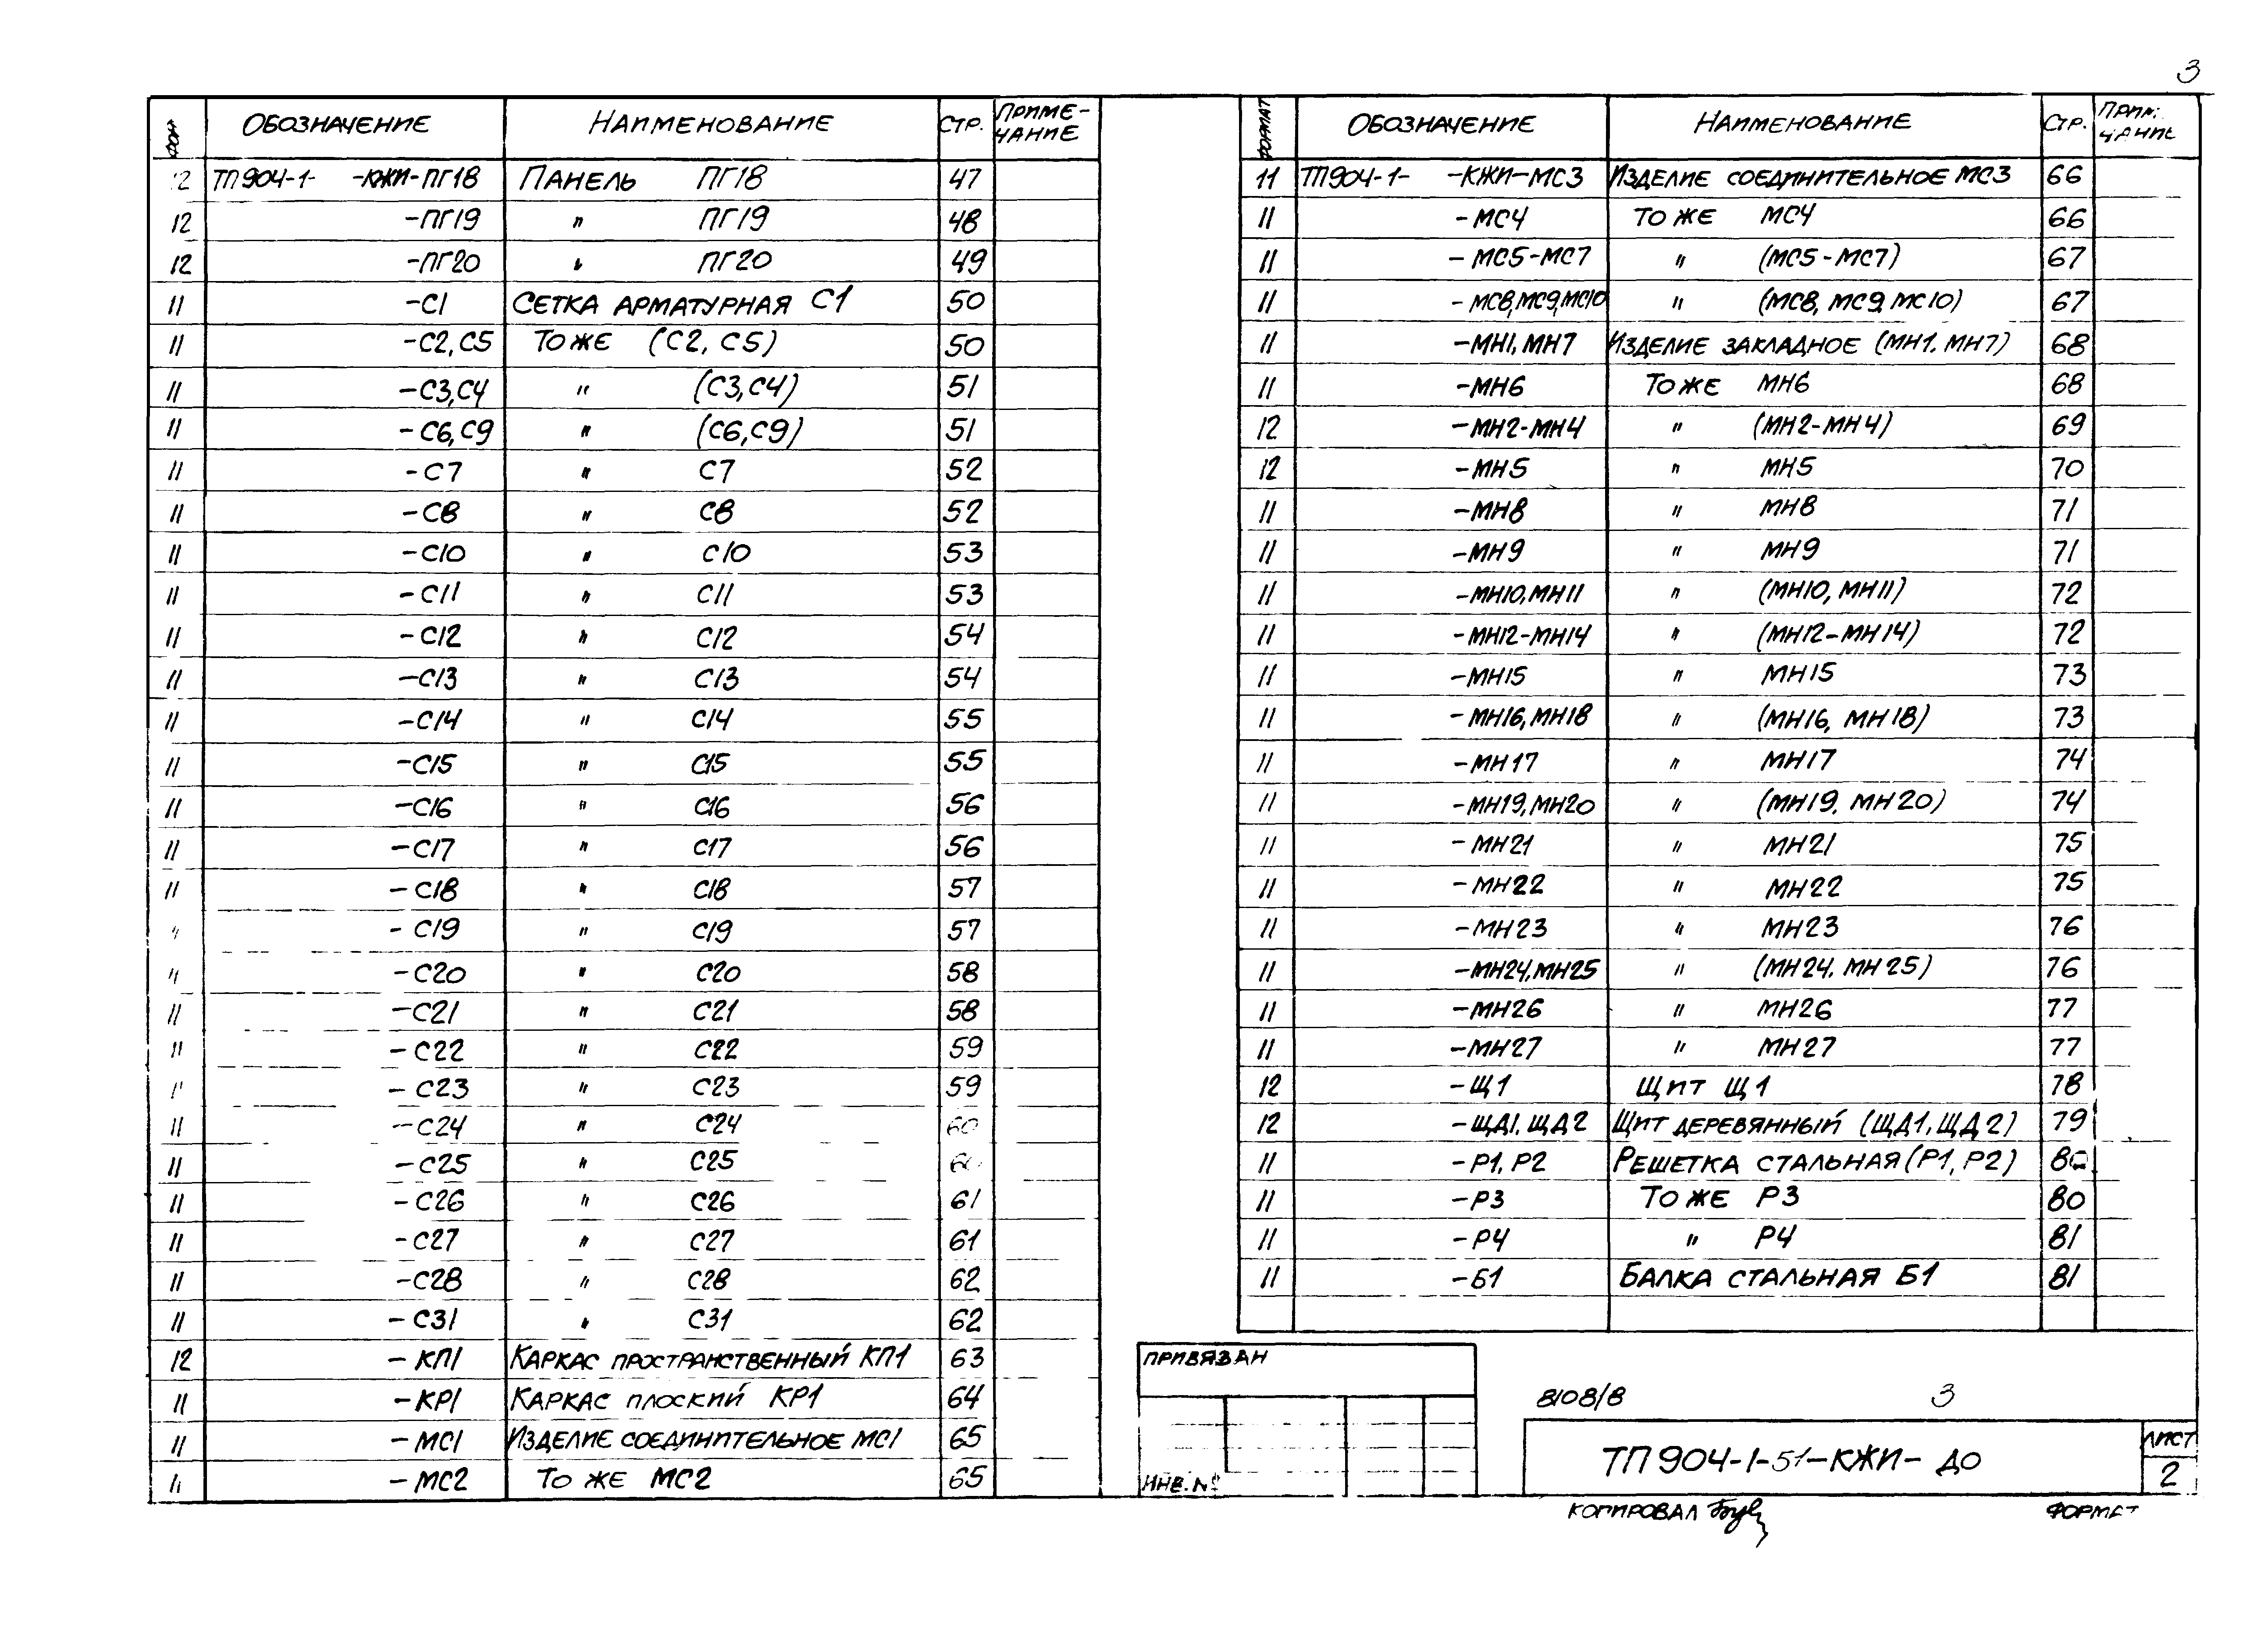 3
ФОРМ ОБОЗНАЧЕНИЕ НАИМЕНОВАНИЕ СТР. ПРИМЕ-ЧАНИЕ
12 ТП904-1- -КЖИ-ПГ18 ПАНЕЛЬ ПГ18 47
12 -ПГ19 " ПГ19 48
12 -ПГ20 " ПГ20 49
11 -С1 СЕТКА АРМАТУРНАЯ С1 50
11 -С2, С5 ТО ЖЕ (С2, С5) 50
11 -С3,С4 " (С3,С4) 51
11 -С6,С9 " (С6,С9) 51
11 -С7 " С7 52
11 -С8 " С8 52
11 -С10 " С10 53
11 -С11 " С11 53
11 -С12 " С12 54
11 -С13 " С13 54
11 -С14 " С14 55
11 -С15 " С15 55
11 -С16 " С16 56
11 -С17 " С17 56
11 -С18 " С18 57
11 -С19 " С19 57
11 -С20 " С20 58
11 -С21 " С21 58
11 -С22 " С22 59
11 -С23 " С23 59
11 -С24 " С24 60
11 -С25 " С25 60
11 -С26 " С26 61
11 -С27 " С27 61
11 -С28 " С28 62
11 -С31 " С31 62
12 -КП1 КАРКАС ПРОСТРАНСТВЕННЫЙ КП1 63
11 -КР1 КАРКАС ПЛОСКИЙ КР1 64
11 -МС1 ИЗДЕЛИЕ СОЕДИНИТЕЛЬНОЕ МС1 65
11 -МС2 ТО ЖЕ МС2 65
ФОРМАТ ОБОЗНАЧЕНИЕ НАИМЕНОВАНИЕ СТР. ПРИМ ЧАНИЕ
11 ТП904-1- -КЖИ-МС3 ИЗДЕЛИЕ СОЕДИНИТЕЛЬНОЕ МС3 66
11 -МС4 ТО ЖЕ МС4 66
11 -МС5-МС7 " (МС5-МС7) 67
11 -МС8,МС9,МС10 " (МС8, МС9, МС10) 67
11 -МН1, МН7 ИЗДЕЛИЕ ЗАКЛАДНОЕ (МН1. МН7) 68
11 -МН6 ТО ЖЕ МН6 68
12 -МН2-МН4 " (МН2-МН4) 69
12 -МН5 " МН5 70
11 -МН8 " МН8 71
11 -МН9 " МН9 71
11 -МН10,МН11 " (МН10, МН11) 72
11 -МН12-МН14 " (МН12-МН14) 72
11 -МН15 " МН15 73
11 -МН16,МН18 " (МН16, МН18) 73
11 -МН17 " МН17 74
11 -МН19,МН20 " (МН19, МН20) 74
11 -МН21 " МН21 75
11 -МН22 " МН22 75
11 -МН23 " МН23 76
11 -МН24,МН25 " (МН24, МН25) 76
11 -МН26 " МН26 77
11 -МН27 " МН27 77
12 -Щ1 ЩИТ Щ1 78
12 -ЩД1, ЩД2 ЩИТ ДЕРЕВЯННЫЙ (ЩД1, ЩД2) 79
11 -Р1, Р2 РЕШЕТКА СТАЛЬНАЯ (Р1, Р2) 80
11 -Р3 ТО ЖЕ Р3 80
11 -Р4 " Р4 81
11 -Б1 БАЛКА СТАЛЬНАЯ Б1 81
ПРИВЯЗАН
ИНВ. №
8108/8 3
ТП904-1-51-КЖИ-ДО
ЛИСТ
2
КОПИРОВАЛ
ФОРМАТ